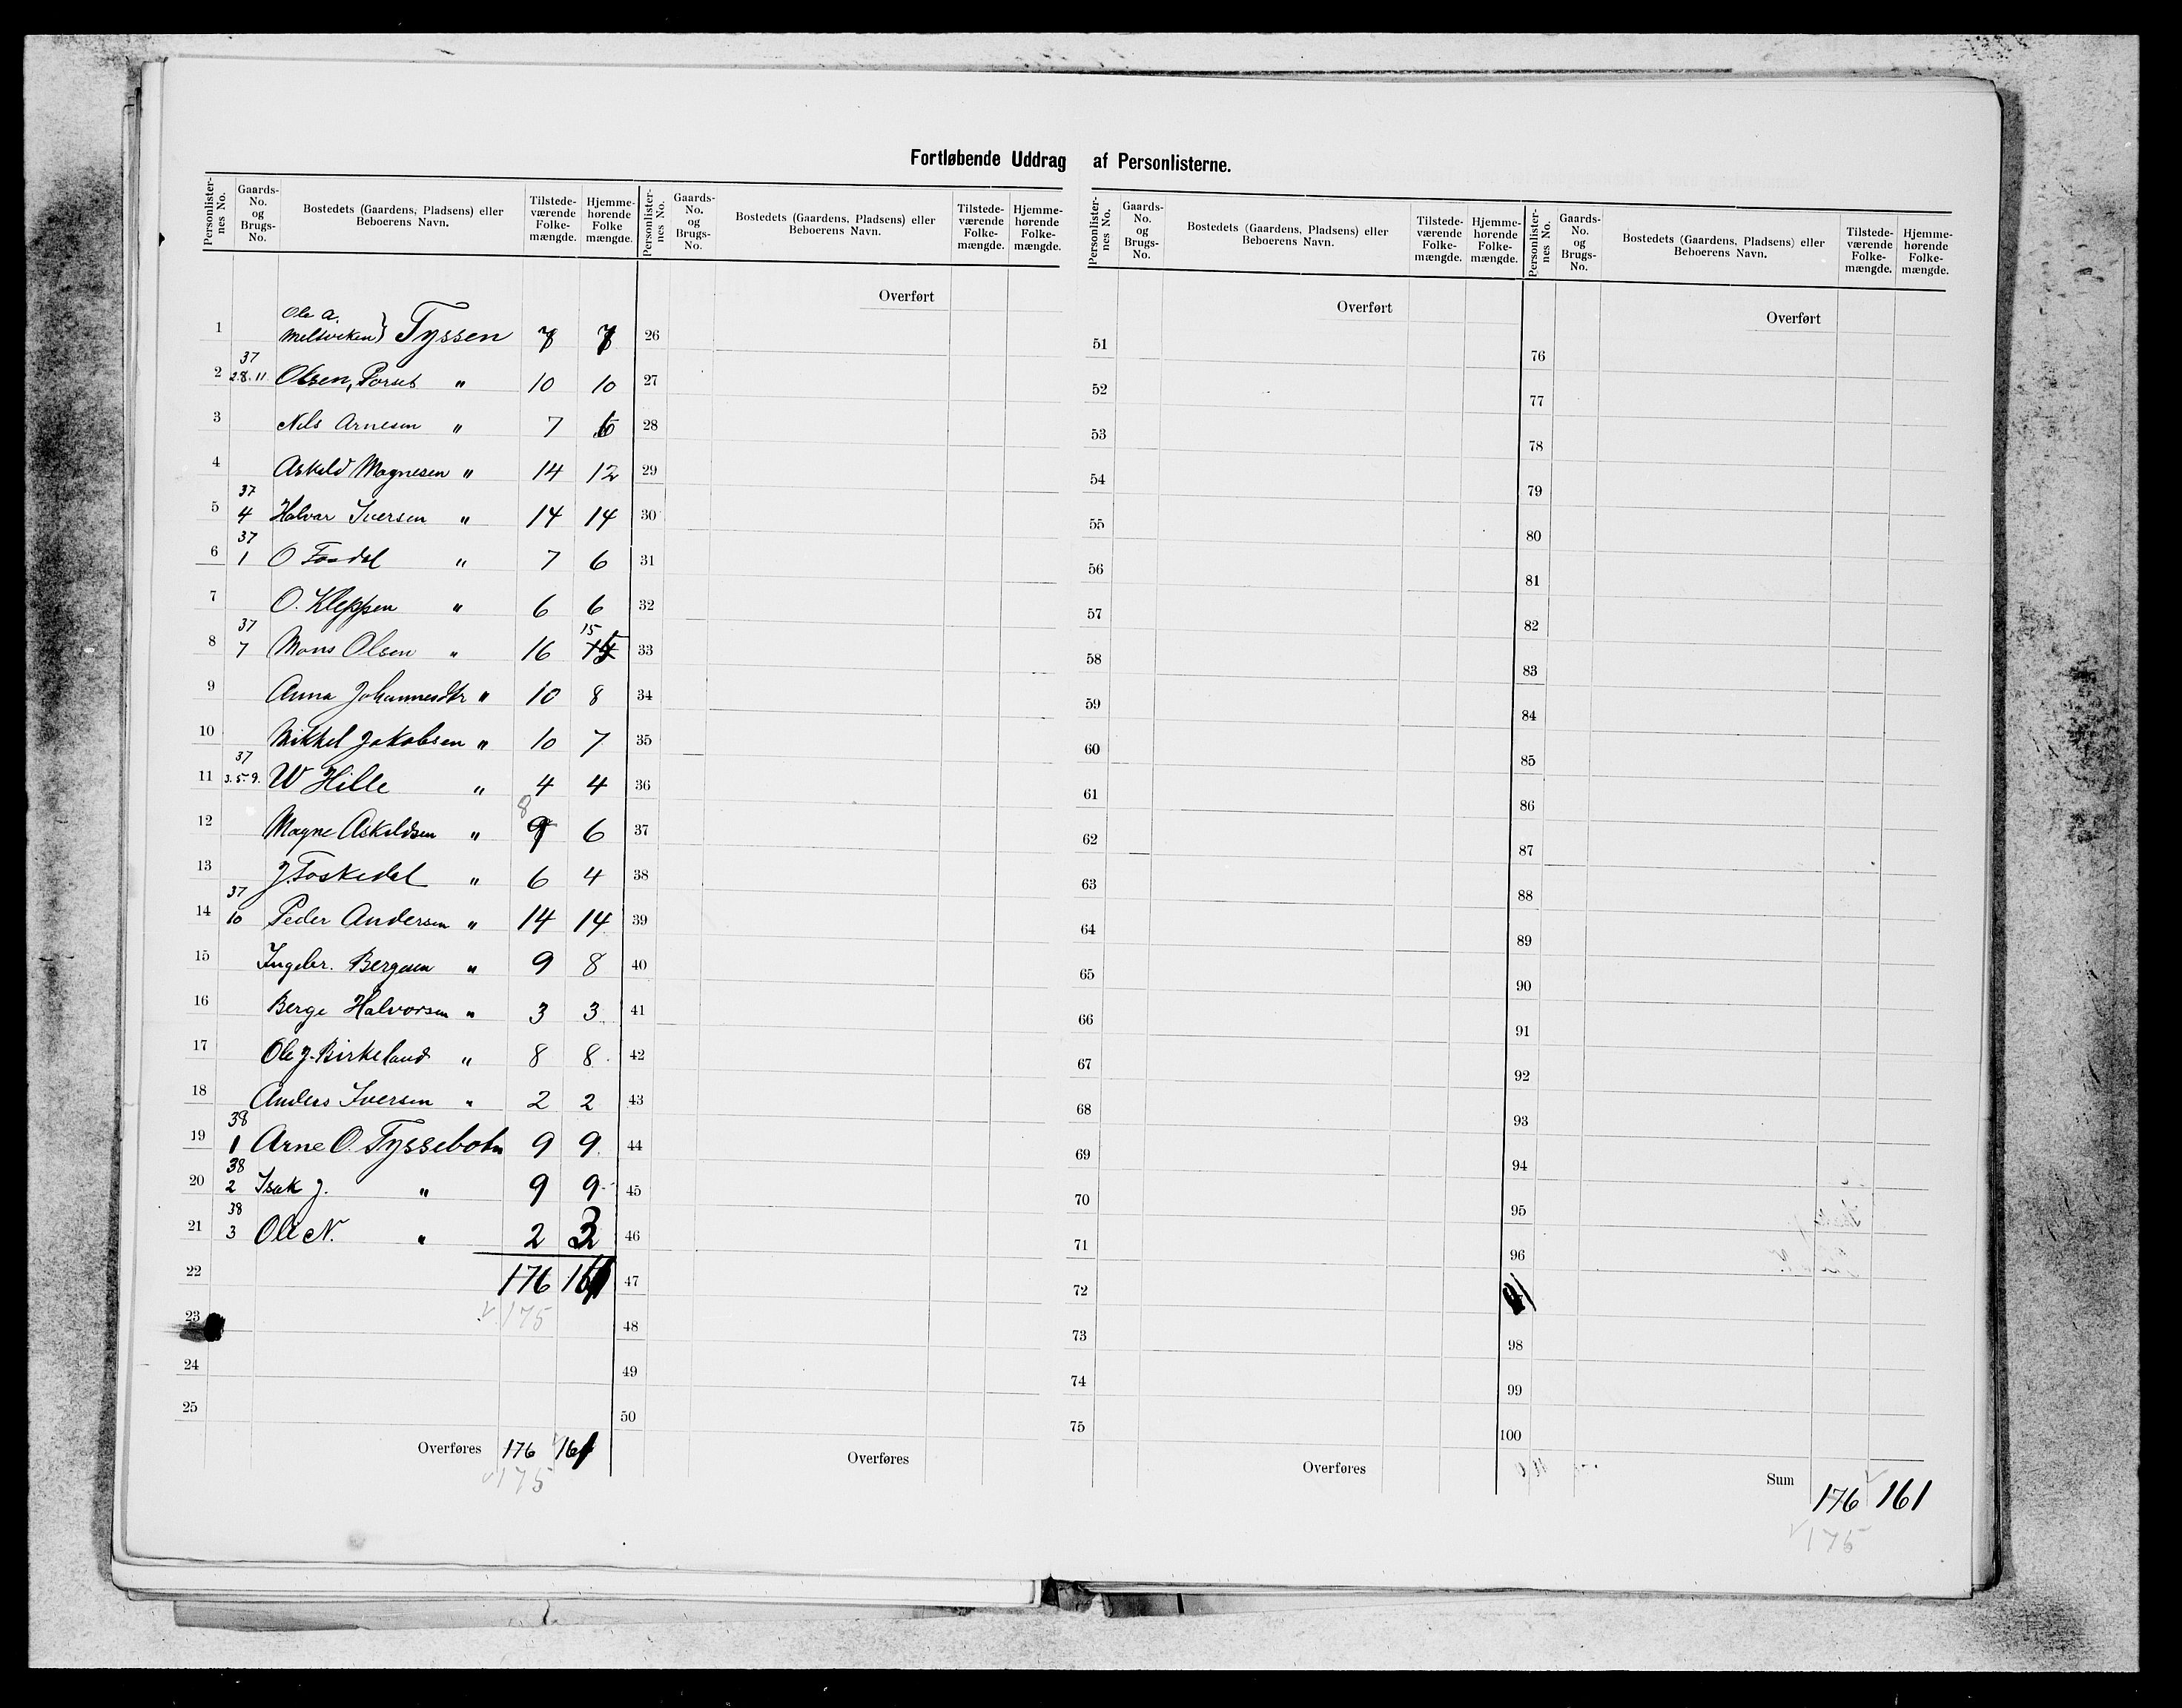 Fortløbende Uddrag af Personlisterne.
Personlisternes No. Gaards-No. og Brugs-No. Bostedets (Gaardens, Pladsens) eller Beboerens Navn. Tilstedeværende Folkemængde. Hjemmehørende Folkemængde.
Personlisternes No. Gaards-No. og Brugs-No. Bostedets (Gaardens, Pladsens) eller Beboerens Navn. Tilstedeværende Folkemængde. Hjemmehørende Folkemængde.
Personlisternes No. Gaards-No. og Brugs-No. Bostedets (Gaardens, Pladsens) eller Beboerens Navn. Tilstedeværende Folkemængde. Hjemmehørende Folkemængde.
Personlisternes No. Gaards-No. og Brugs-No. Bostedets (Gaardens, Pladsens) eller Beboerens Navn. Tilstedeværende Folkemængde. Hjemmehørende Folkemængde.
Overført Overført Overført
Ole A.
1 Tyssen 26 51 76
37
2 2.8.11. Olsen, " 10 10 27 52 77
3 Nils Arnesen " 7 28 53 78
4 Askeld Magnesen " 14 12 29 54 79
37
5 4 Halvar Iversen " 14 14 30 55 80
37
6 1 O " 7 6 31 56 81
7 O. Kleppen " 6 6 32 57 82
37 15
8 7 Mons Olsen " 16 33 58 83
9 Anna Johannesdtr " 10 8 34 59 84
10 Mikkel Jakobsen " 10 7 35 60 85
37
11 3.5.9. W Hille " 4 4 36 61 86
8
12 Magne Askeldsen " 9 6 37 62 87
13 J. Foskedal " 6 4 38 63 88
37
14 10 Peder Andersen " 14 14 39 64 89
15 Ingebr. Bergesen " 9 8 40 65 90
16 Berge Halvorsen " 3 3 41 66 91
17 Ole J. Birkeland " 8 8 42 67 92
18 Anders Iversen " 2 2 43 68 93
38
19 1 Arne O. Tyssebotn 9 9 44 69 94
38
20 2 Isak J. " 9 9 45 70 95
38
21 3 Ole N. " 2 3 46 71 96
22 176 161 47 72
23 175 48 73 98
24 49 74 99
25 50 75 100
Overføres 176 161 Overføres Overføres Sum 176 161
175 175